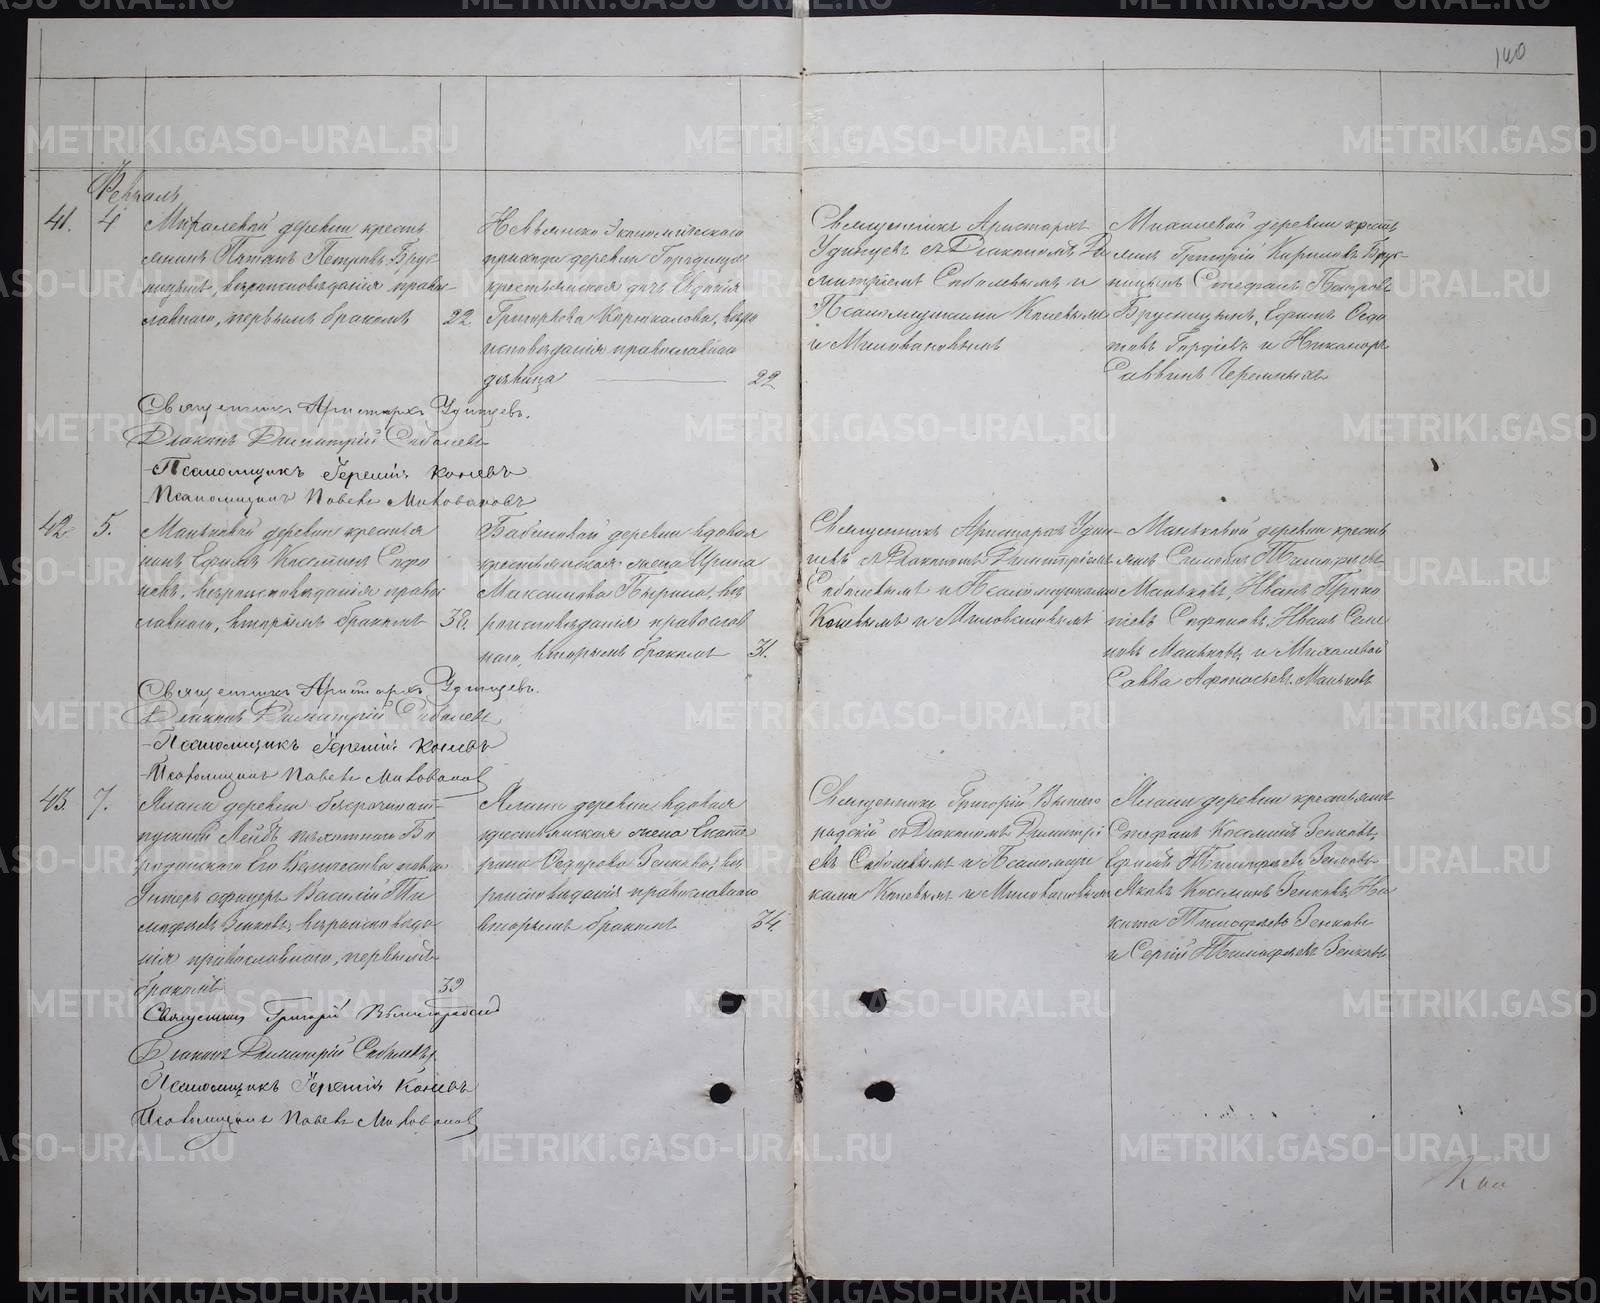 140
Февраль
41. 4 Михалевой деревни кресть
янинъ Потапъ Петровъ Брус
ницынъ, вѣроисповѣданія право
славнаго, первымъ бракомъ 22.
Невьянско Экономическаго
прихода деревни Городища
крестьянская дочь Евдокія
Григорьева вѣро
исповѣданія православнаго
дѣвица 22
Священникъ Аристархъ
Удинцевъ съ Діакономъ Ди
митріемъ Соболевымъ и
Псаломщиками Коневымъ
и Миловановымъ
Михалевой деревни кресть
янинъ Григорій Кириловъ Брус-
ницынъ Стефанъ Петровъ
Брусницынъ, Ефимъ Федо
товъ Гордѣевъ и Никаноръ
Саввинъ Черемныхъ
Священникъ Аристархъ Удинцевъ.
Діаконъ Димитрій Соболевъ
Псаломщикъ Іеремія Коневъ
Псаломщикъ Павелъ Миловановъ
42. 5. Маньковой деревни крестья
нинъ Ефимъ Косминъ Софо
новъ, вѣроисповѣданія право
славнаго, вторымъ бракомъ 38.
Бабиновой деревни вдовая
крестьянская жена Ирина
Максимова вѣ
роисповѣданія православ
наго, вторымъ бракомъ 31.
Священникъ Аристархъ Удин-
цевъ съ Діакономъ Димитріемъ
Соболевымъ и Псаломщиками
Коневымъ и Миловановымъ
Маньковой деревни кресть
янинъ Тимофеевъ
Маньковъ, Иванъ Проко
піевъ Софоновъ, Иванъ Семе
новъ Маньковъ и Михалевой
Савва Афонасьевъ Маньковъ
Священникъ Аристархъ Удинцевъ.
Діаконъ Димитрій Соболевъ
Псаломщикъ Іеремія Коневъ
Псаломщикъ Павелъ Миловановъ
43. 7. Ялани деревни безсрочноот-
пускной Лейбъ пѣхотнаго Бо
родинскаго Его Величества полка
Унтеръ офицеръ Василій Ти
мофеевъ Зенковъ, вѣроисповѣда
нія православнаго, первымъ
бракомъ 32
Ялани деревни вдовая
крестьянская жена Екате
рина Федорова Зенкова, вѣ
роисповѣданія православнаго
вторымъ бракомъ 34.
Священникъ Григорій Вышего
радскій съ Діакономъ Димитрі
емъ Соболевымъ и Псаломщи
ками Коневымъ и Миловановымъ
Ялани деревни крестьяне
Стефанъ Косминъ Зенковъ,
Ефимъ Тимофеевъ Зенковъ
Яковъ Косминъ Зенковъ, Ни
кита Тимофеевъ Зенковъ
и Сергій Тимофеевъ Зенковъ
Священникъ Григорій Вышегородскій
Діаконъ Димитрій Соболевъ
Псаломщикъ Іеремія Коневъ
Псаломщикъ Павелъ Миловановъ
METRIKI.GASO-URAL.RU